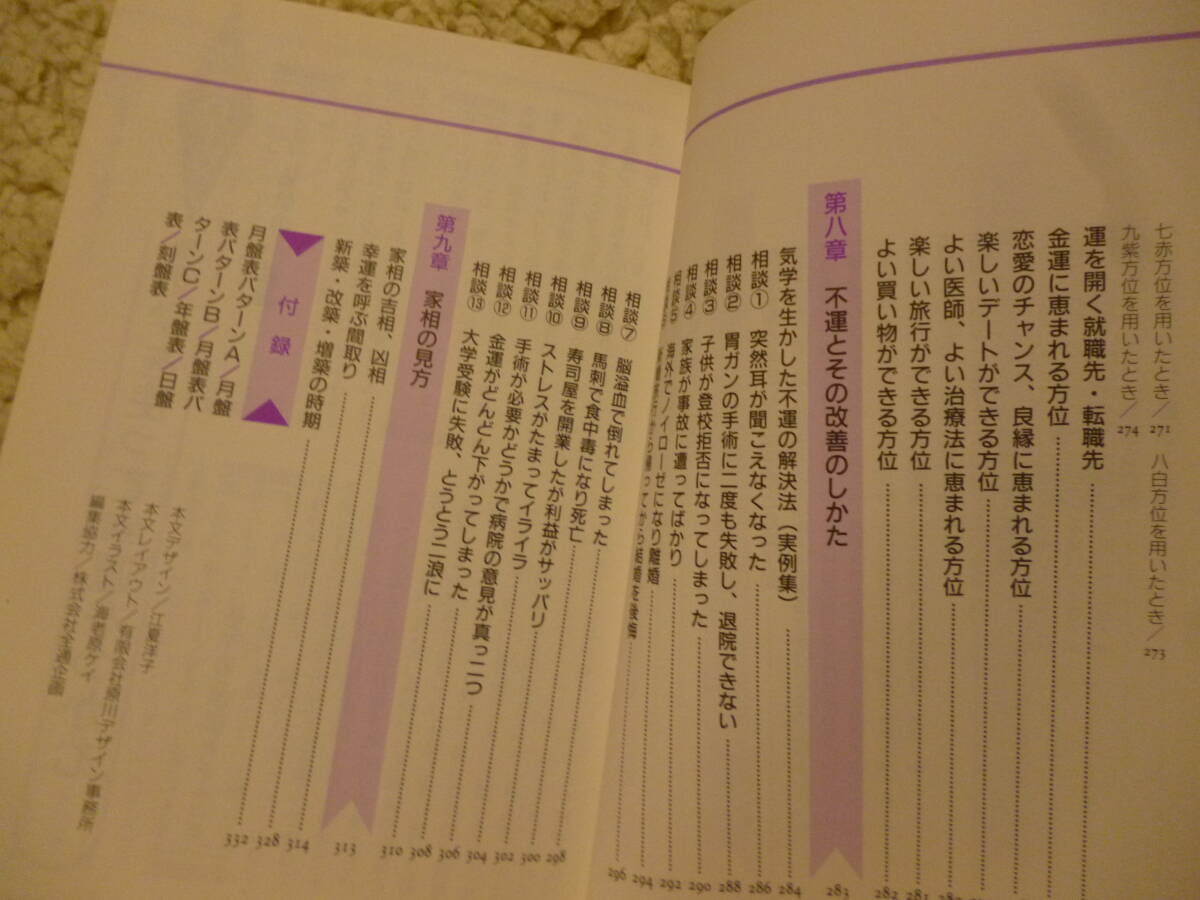 七赤方位を用いたとき／271　八白方位を用いたとき／273
九紫方位を用いたとき／274
運を開く就職先・転職先
金運に恵まれる方位
恋愛のチャンス、良縁に恵まれる方位
楽しいデートができる方位
よい医師、よい治療法に恵まれる方位
楽しい旅行ができる方位 281
よい買い物ができる方位 282
第八章　不運とその改善のしかた 283
気学を生かした不運の解決法（実例集） 284
相談① 突然耳が聞こえなくなった 286
相談② 胃ガンの手術に二度も失敗し、退院できない 288
相談③ 子供が登校拒否になってしまった 290
相談④ 家族が事故に遭ってばかり 292
相談⑤ 海外でノイローゼになり離婚 294
から結婚を後悔 296
相談⑦ 脳溢血で倒れてしまった 298
相談⑧ 馬刺で食中毒になり死亡 300
相談⑨ 寿司屋を開業したが利益がサッパリ 302
相談⑩ ストレスがたまってイライラ 304
相談⑪ 手術が必要かどうかで病院の意見が真っ二つ 306
相談⑫ 金運がどんどん下がってしまった 308
相談⑬ 大学受験に失敗、とうとう二浪に 310
第九章　家相の見方 313
家相の吉相、凶相 314
幸運を呼ぶ間取り 328
新築・改築・増築の時期 332
付録
月盤表パターンA／月盤
表パターンB／月盤表パ
ターンC／年盤表／日盤
表／刻盤表
本文デザイン／江夏洋子
本文レイアウト／有限会社原川デザイン事務所
本文イラスト／海老原ケイ
編集協力／株式会社全通企画